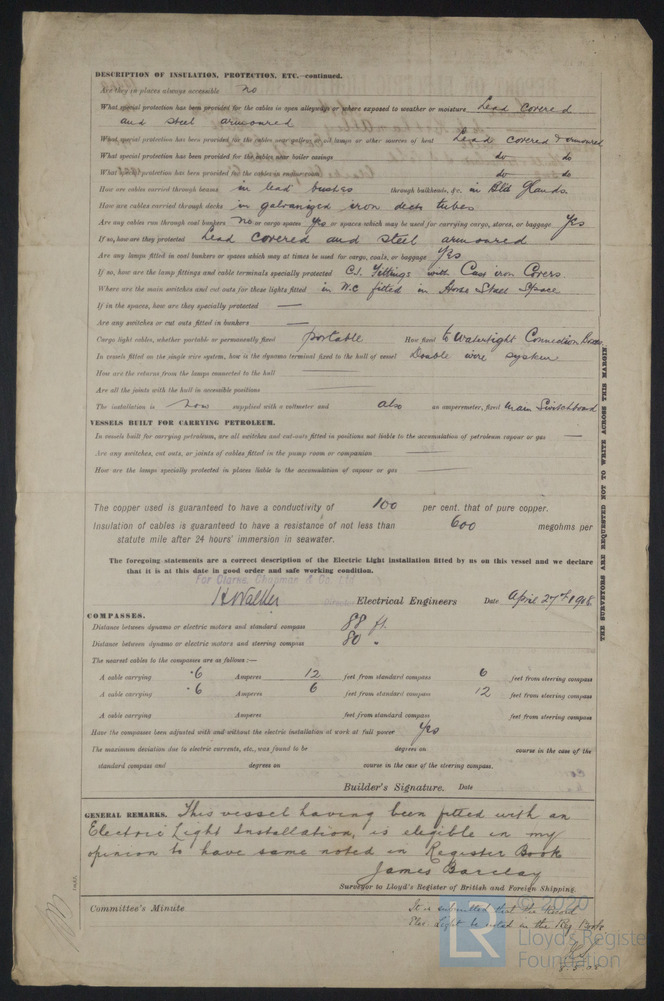 DESCRIPTION OF INSULATION, PROTECTION, ETC.—continued.
Are they in places always accessible no
What special protection has been provided for the cables in open alleyways or where exposed to weather or moisture Lead covered
and steel armoured
What special protection has been provided for the cables near galleys or oil lamps or other sources of heat Lead covered & armoured
What special protection has been provided for the cables near boiler casings do do
What special protection has been provided for the cables in engine room do do
How are cables carried through beams in lead bushes through bulkheads, &c. in Glands.
How are cables carried through decks in galvanized iron deck tubes
Are any cables run through coal bunkers no or cargo spaces yes or spaces which may be used for carrying cargo, stores, or baggage yes
If so, how are they protected Lead covered and steel armoured
Are any lamps fitted in coal bunkers or spaces which may at times be used for cargo, coals, or baggage yes
If so, how are the lamp fittings and cable terminals specially protected C.I. Fittings with Cast iron Covers
Where are the main switches and cut outs for these lights fitted in W.C fitted in Horse Stall Space
If in the spaces, how are they specially protected —
Are any switches or cut outs fitted in bunkers —
Cargo light cables, whether portable or permanently fixed portable How fixed to Watertight Connection Boxes
In vessels fitted on the single wire system, how is the dynamo terminal fixed to the hull of vessel Double wire system
How are the returns from the lamps connected to the hull
Are all the joints with the hull in accessible positions
The installation is now supplied with a voltmeter and also an amperemeter, fixed main Switchboard
VESSELS BUILT FOR CARRYING PETROLEUM.
In vessels built for carrying petroleum, are all switches and cut-outs fitted in positions not liable to the accumulation of petroleum vapour or gas —
Are any switches, cut outs, or joints of cables fitted in the pump room or companion
How are the lamps specially protected in places liable to the accumulation of vapour or gas
The copper used is guaranteed to have a conductivity of 100 per cent. that of pure copper.
Insulation of cables is guaranteed to have a resistance of not less than 600 megohms per
statute mile after 24 hours' immersion in seawater.
The foregoing statements are a correct description of the Electric Light installation fitted by us on this vessel and we declare
that it is at this date in good order and safe working condition.
For Clarke, Chapman & Co. Ltd.
Walker Director Electrical Engineers Date April 27th 1908
COMPASSES.
Distance between dynamo or electric motors and standard compass 88 ft.
Distance between dynamo or electric motors and steering compass 80 "
The nearest cables to the compasses are as follows:—
A cable carrying .6 Amperes 12 feet from standard compass 6 feet from steering compass
A cable carrying .6 Amperes 6 feet from standard compass 12 feet from steering compass
A cable carrying Amperes feet from standard compass feet from steering compass
Have the compasses been adjusted with and without the electric installation at work at full power Yes
The maximum deviation due to electric currents, etc., was found to be degrees on course in the case of the
standard compass and degrees on course in the case of the steering compass.
Builder's Signature. Date
GENERAL REMARKS. This vessel having been fitted with an
Electric Light Installation, is eligible in my
opinion to have same noted in Register Book
James Barclay
Surveyor to Lloyd's Register of British and Foreign Shipping.
Committee's Minute
It is submitted that the Record
Elec. Light be noted in the Reg Book
8.5.08
THE SURVEYORS ARE REQUESTED NOT TO WRITE ACROSS THIS MARGIN
LR
© 2020
Lloyd's Register
Foundation